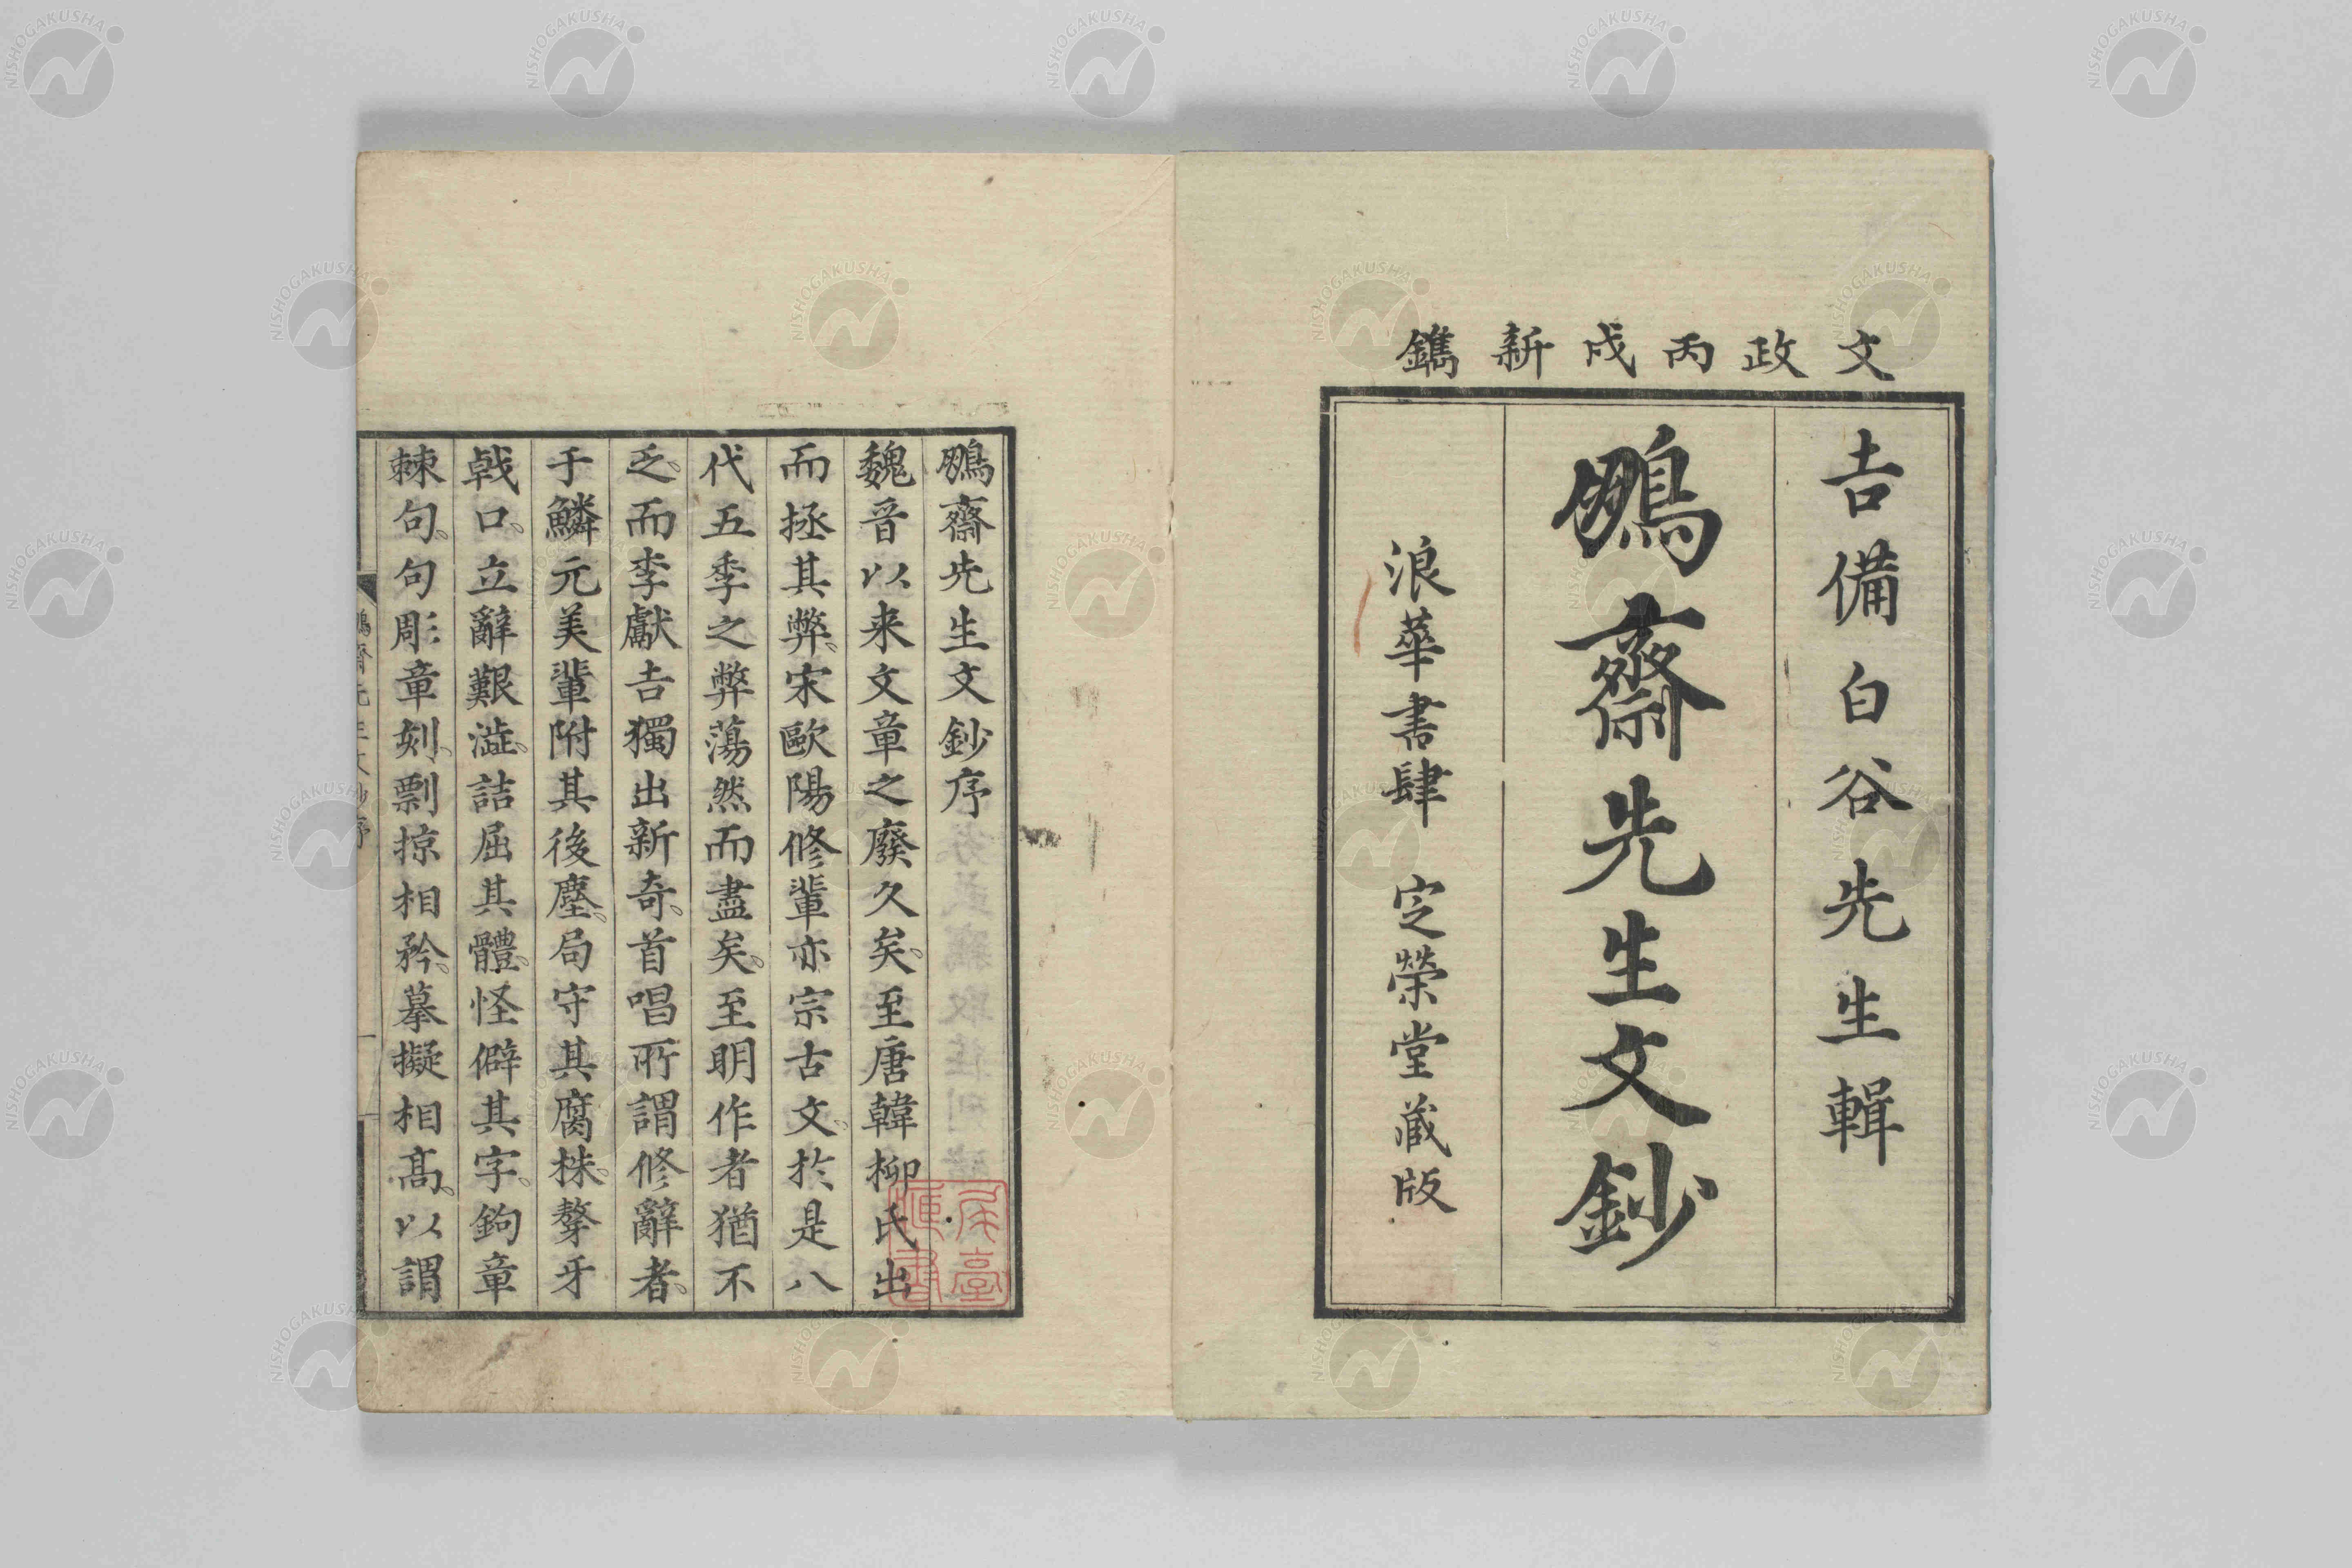 文政丙戌新鐫
吉備白谷先生輯
鵬齋先生文鈔
浪華書肆 定榮堂藏版
鵬齋先生文鈔序
魏晉以来文章之廢久矣。至唐韓柳氏出
而拯其弊。宋歐陽修輩亦宗古文。於是八
代五季之弊蕩然而盡矣。至明作者猶不
乏。而李獻吉獨出新奇。首唱所謂修辭者。
于鱗元美輩附其後塵。局守其腐株。聱牙
戟口。立辭艱澁。詰屈其體。怪僻其字。鉤章
棘句。句彫章刻。剽掠相矜。摹擬相高。以謂
NISHOGAKUSHA